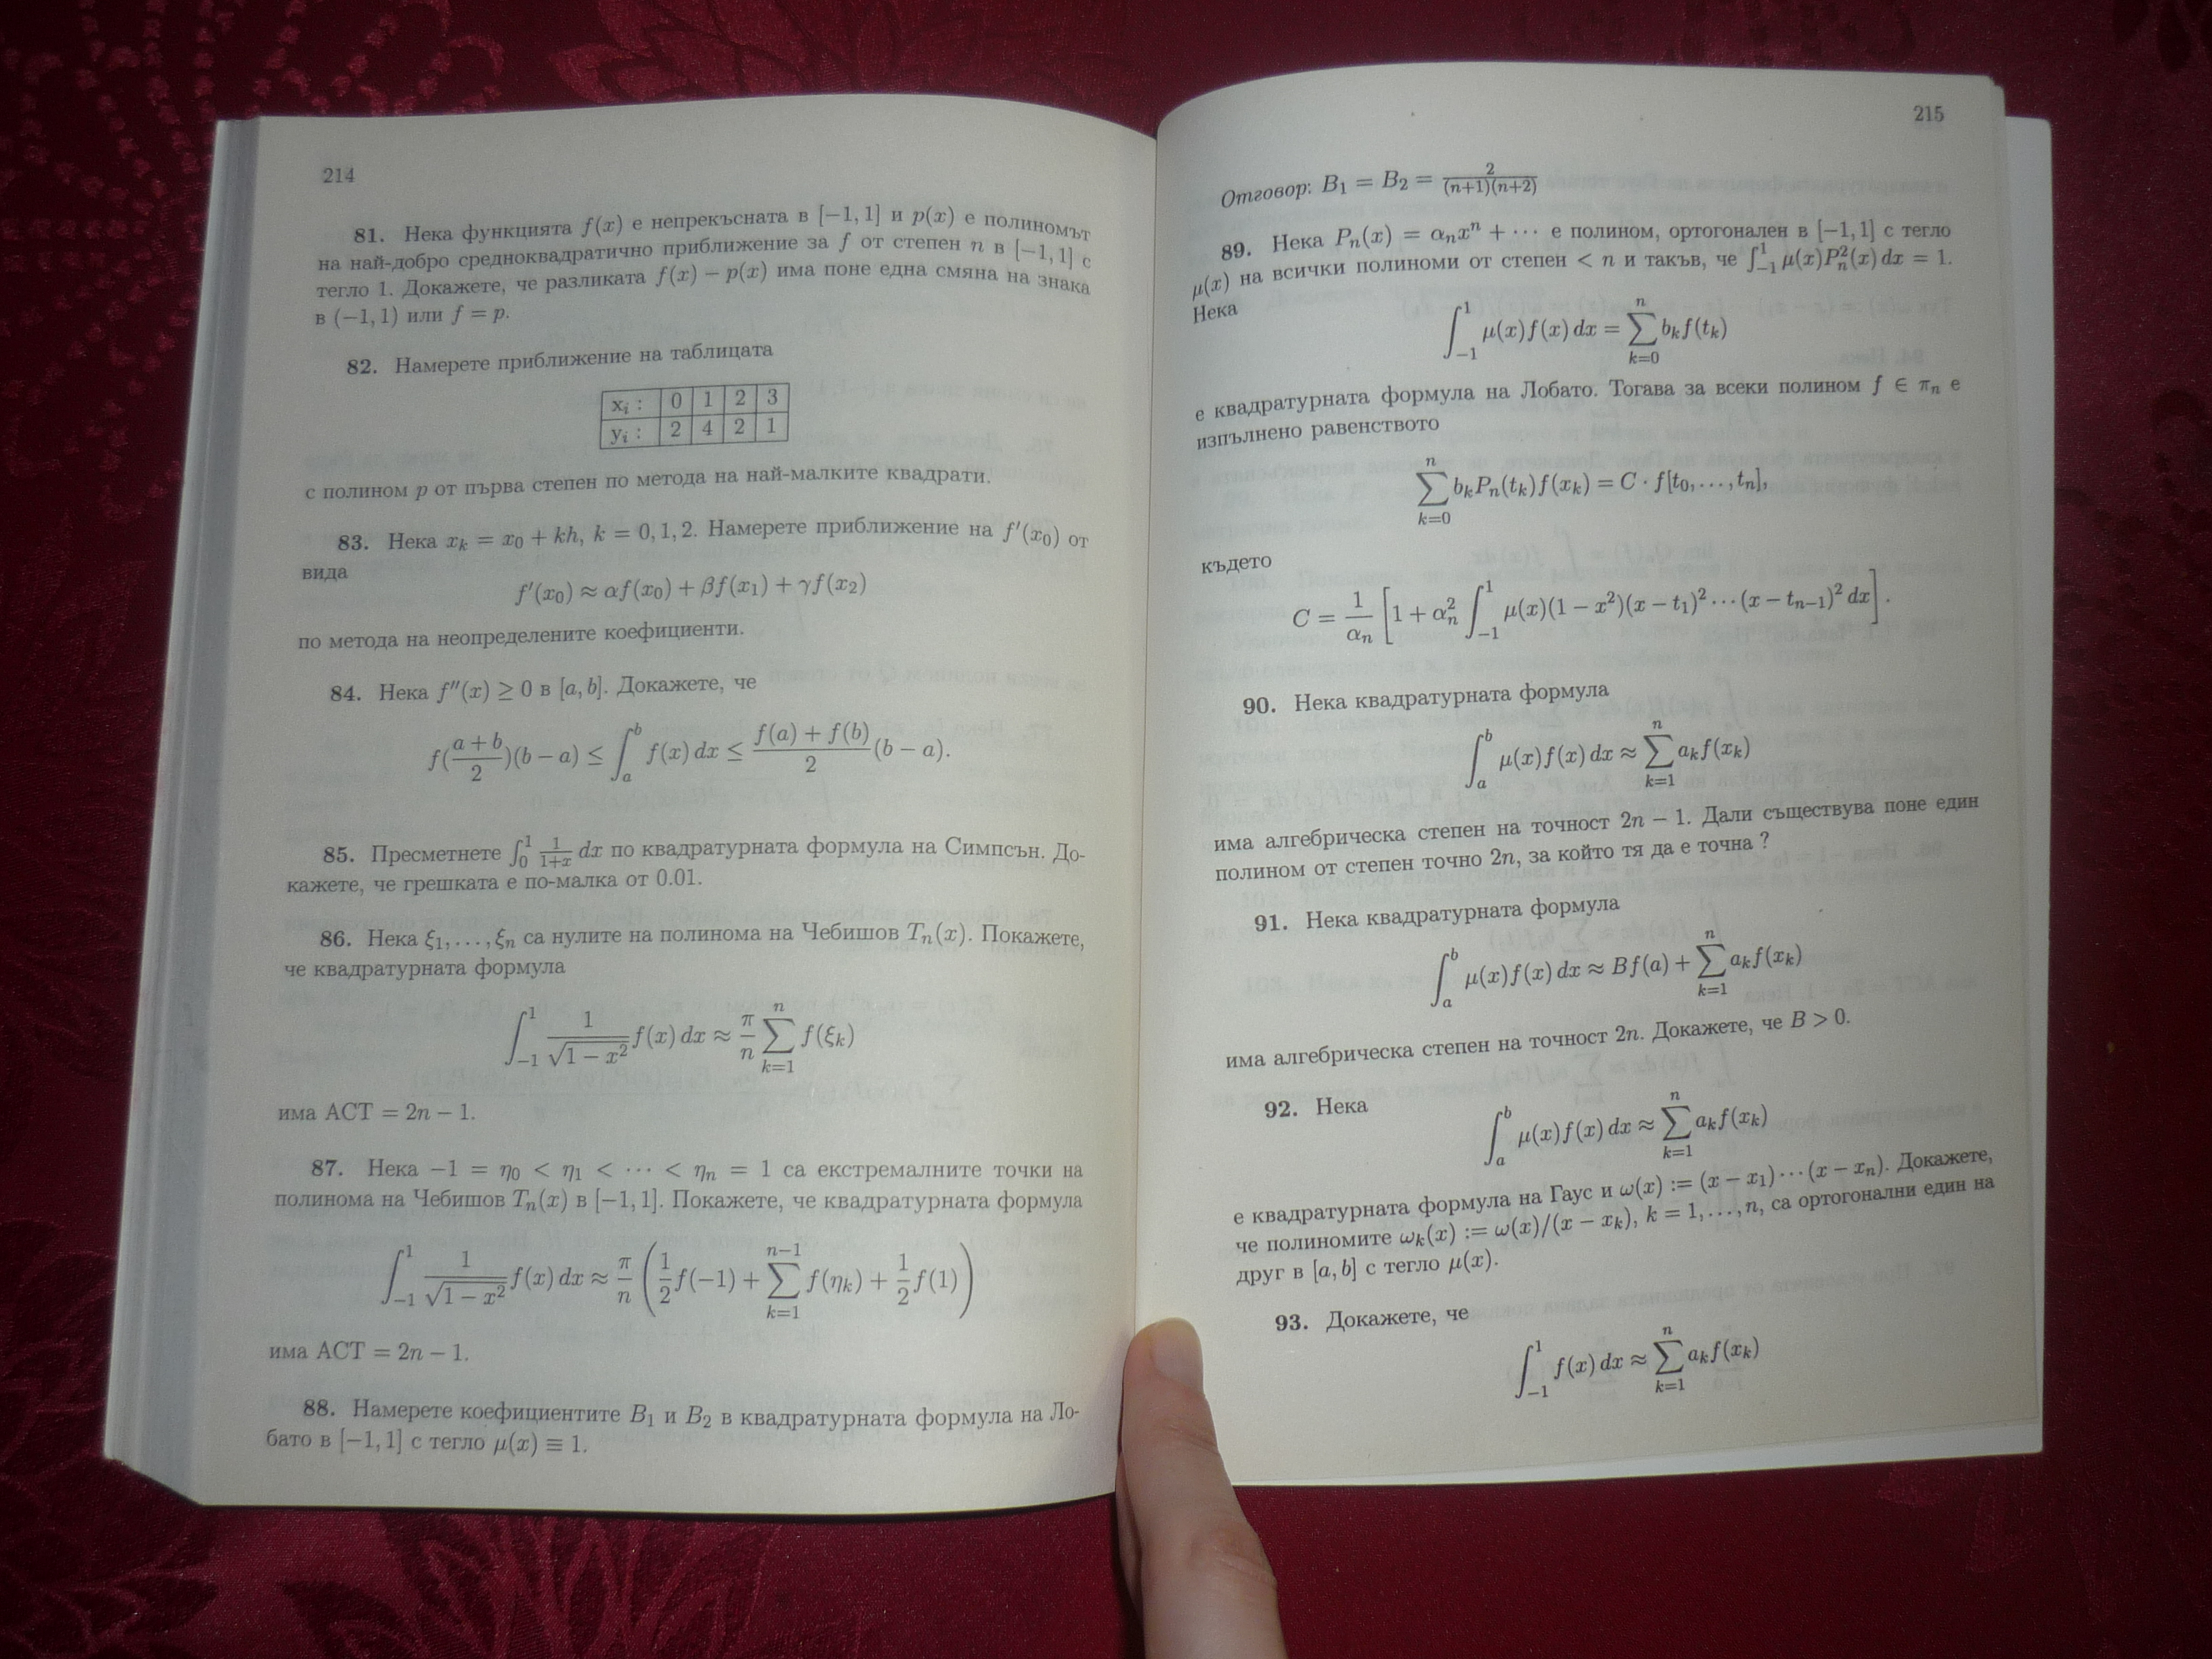 214
81. Нека функцията f(x) е непрекъсната в [−1, 1] и p(x) е полиномът
на най-добро средноквадратично приближение за f от степен n в [−1, 1] с
тегло 1. Докажете, че разликата f(x) − p(x) има поне една смяна на знака
в (−1, 1) или f = p.
82. Намерете приближение на таблицата
x_i : 0 1 2 3
y_i : 2 4 2 1
с полином p от първа степен по метода на най-малките квадрати.
83. Нека x_k = x_0 + kh, k = 0, 1, 2. Намерете приближение на f′(x_0) от
вида
f′(x_0) ≈ αf(x_0) + βf(x_1) + γf(x_2)
по метода на неопределените коефициенти.
84. Нека f″(x) ≥ 0 в [a, b]. Докажете, че
f(\frac{a+b}{2})(b − a) ≤ ∫_a^b f(x) dx ≤ \frac{f(a) + f(b)}{2}(b − a).
85. Пресметнете ∫_0^1 \frac{1}{1+x} dx по квадратурната формула на Симпсън. До-
кажете, че грешката е по-малка от 0.01.
86. Нека ξ_1, . . . , ξ_n са нулите на полинома на Чебишов T_n(x). Покажете,
че квадратурната формула
∫_{−1}^1 \frac{1}{\sqrt{1 − x^2}} f(x) dx ≈ \frac{π}{n} ∑_{k=1}^n f(ξ_k)
има АСТ = 2n − 1.
87. Нека −1 = η_0 < η_1 < ⋯ < η_n = 1 са екстремалните точки на
полинома на Чебишов T_n(x) в [−1, 1]. Покажете, че квадратурната формула
∫_{−1}^1 \frac{1}{\sqrt{1 − x^2}} f(x) dx ≈ \frac{π}{n} ( \frac{1}{2} f(−1) + ∑_{k=1}^{n−1} f(η_k) + \frac{1}{2} f(1) )
има АСТ = 2n − 1.
88. Намерете коефициентите B_1 и B_2 в квадратурната формула на Ло-
бато в [−1, 1] с тегло μ(x) ≡ 1.
215
Отговор: B_1 = B_2 = \frac{2}{(n+1)(n+2)}
89. Нека P_n(x) = α_n x^n + ⋯ е полином, ортогонален в [−1, 1] с тегло
μ(x) на всички полиноми от степен < n и такъв, че ∫_{−1}^1 μ(x)P_n^2(x) dx = 1.
Нека
∫_{−1}^1 μ(x)f(x) dx = ∑_{k=0}^n b_k f(t_k)
е квадратурната формула на Лобато. Тогава за всеки полином f ∈ π_n е
изпълнено равенството
∑_{k=0}^n b_k P_n(t_k) f(x_k) = C · f[t_0, . . . , t_n],
където
C = \frac{1}{α_n} [ 1 + α_n^2 ∫_{−1}^1 μ(x)(1 − x^2)(x − t_1)^2 ⋯ (x − t_{n−1})^2 dx ] .
90. Нека квадратурната формула
∫_a^b μ(x)f(x) dx ≈ ∑_{k=1}^n a_k f(x_k)
има алгебрическа степен на точност 2n − 1. Дали съществува поне един
полином от степен точно 2n, за който тя да е точна ?
91. Нека квадратурната формула
∫_a^b μ(x)f(x) dx ≈ Bf(a) + ∑_{k=1}^n a_k f(x_k)
има алгебрическа степен на точност 2n. Докажете, че B > 0.
92. Нека
∫_a^b μ(x)f(x) dx ≈ ∑_{k=1}^n a_k f(x_k)
е квадратурната формула на Гаус и ω(x) := (x − x_1) ⋯ (x − x_n). Докажете,
че полиномите ω_k(x) := ω(x)/(x − x_k), k = 1, . . . , n, са ортогонални един на
друг в [a, b] с тегло μ(x).
93. Докажете, че
∫_{−1}^1 f(x) dx ≈ ∑_{k=1}^n a_k f(x_k)